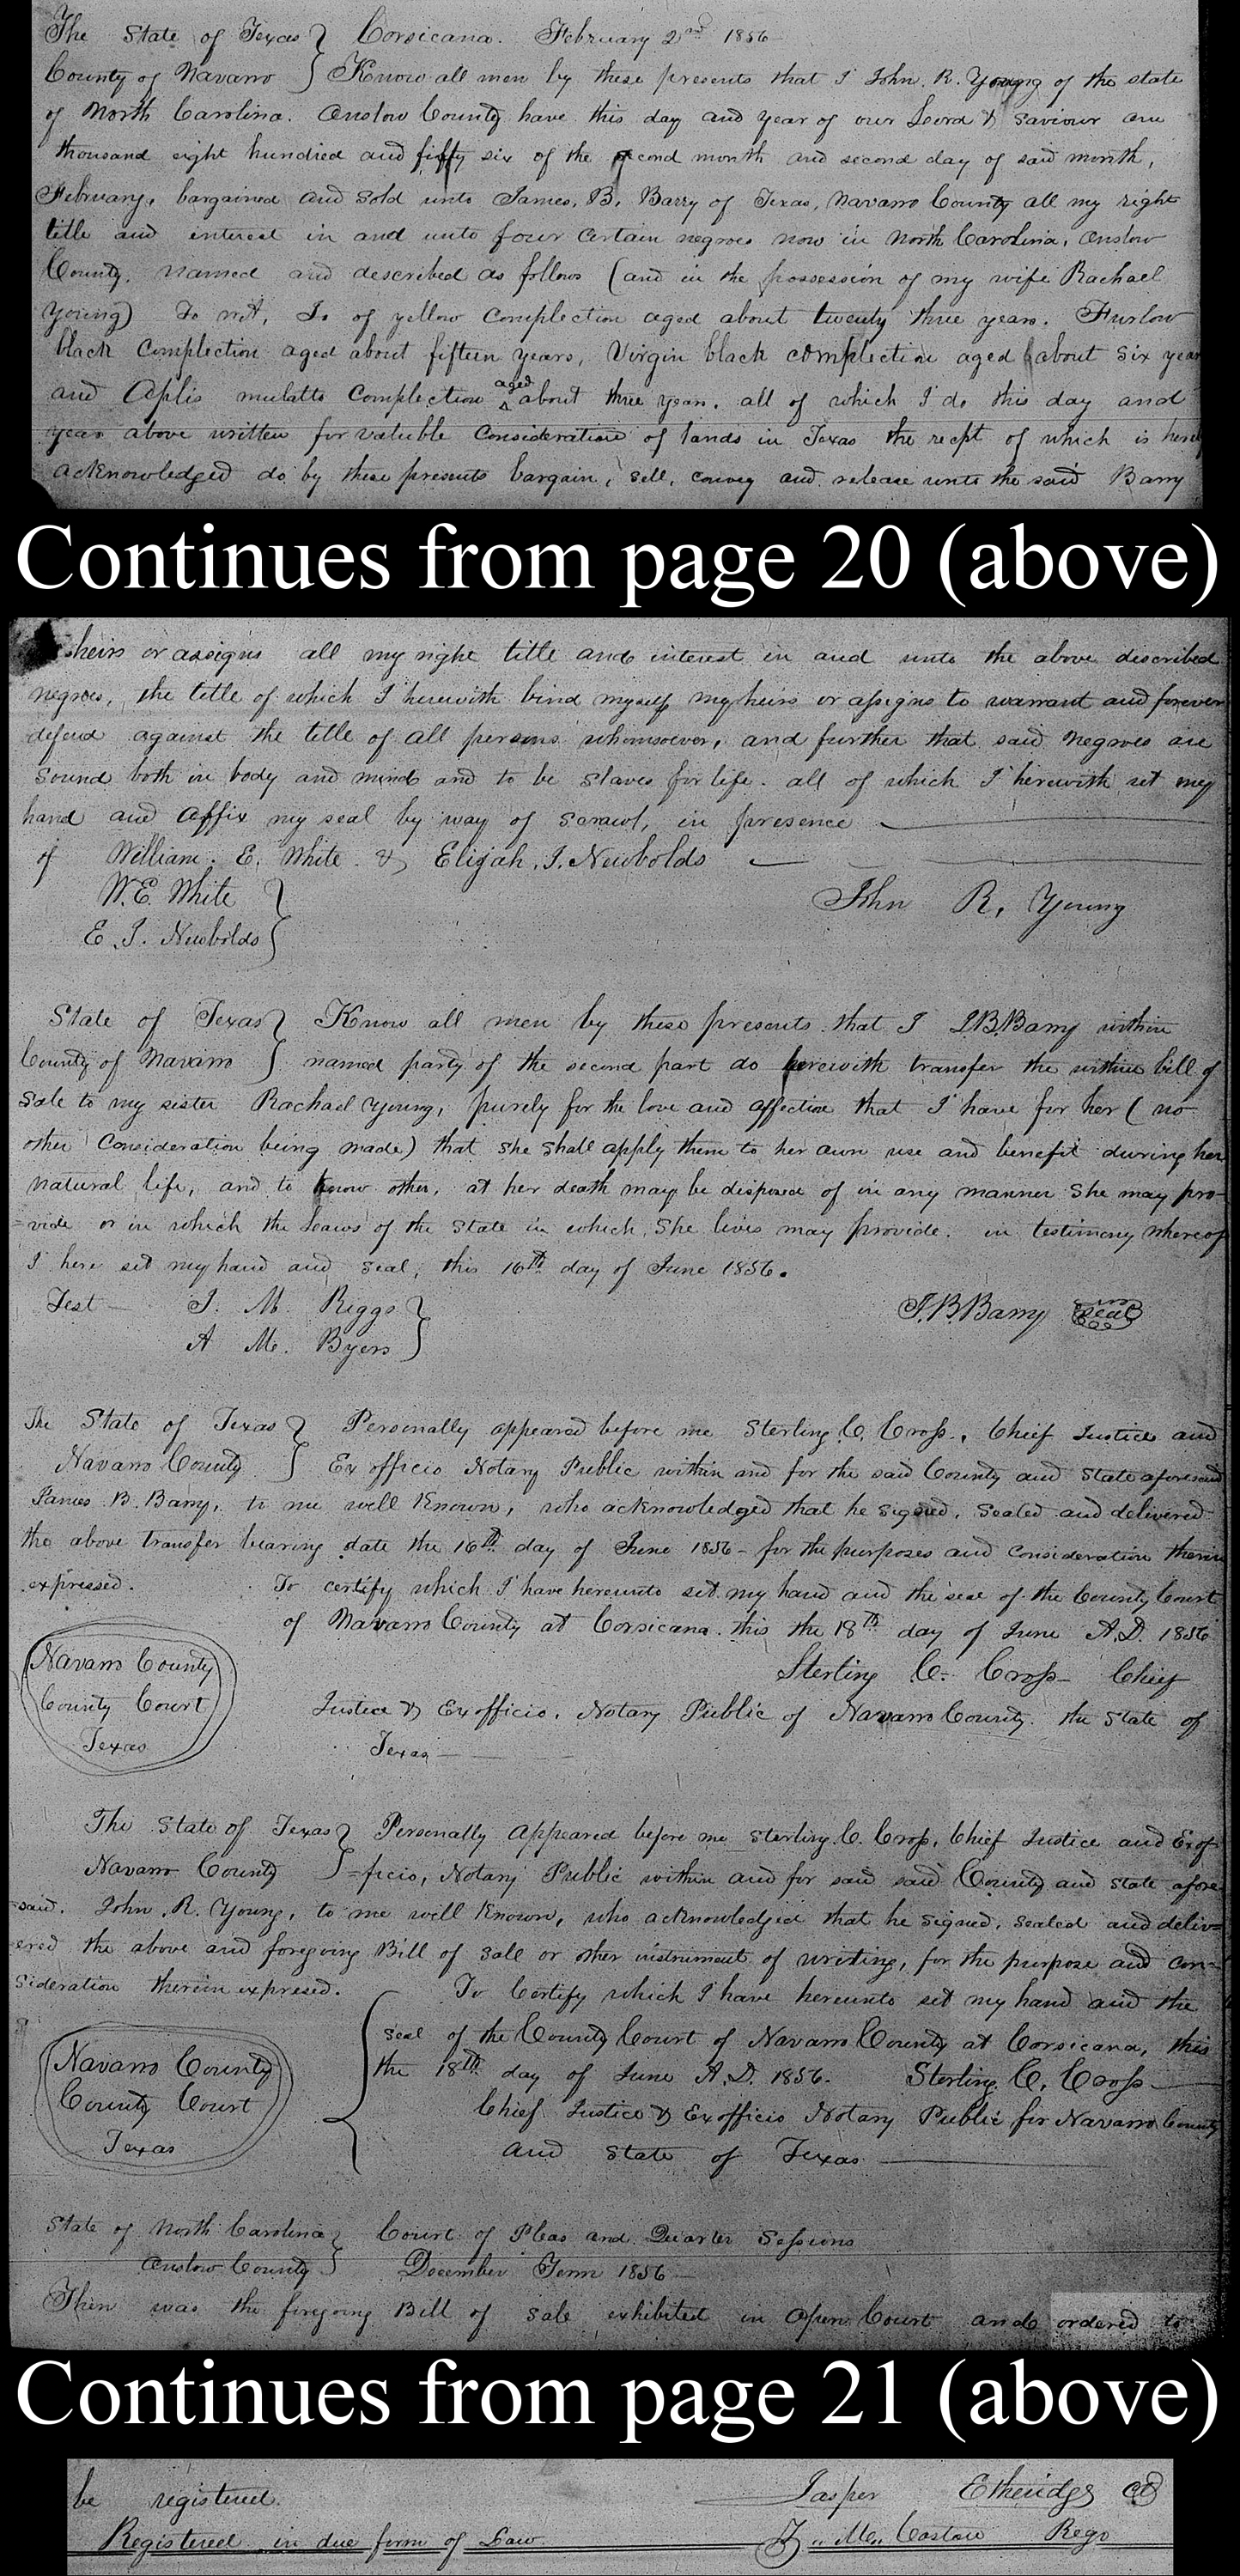 The State of Texas } Corsicana. February 2nd 1856
County of Navarro } Know all men by these presents that I John. R. Young of the state
of North Carolina. Onslow County have this day and year of our Lord & Saviour one
thousand eight hundred and fifty six of the second month and second day of said month,
February, bargained and sold unto James, B, Barry of Texas, Navarro County all my right
title and interest in and unto four certain negroes now in North Carolina, Onslow
County. named and described as follows (and in the possession of my wife Rachael
Young) To wit, of yellow complection aged about twenty three years. Furlow
black complection aged about fifteen years, Virgin black complection aged about six year
and Aplis mulatto complection aged about three year. all of which I do this day and
year above written for valuble consideration of lands in Texas the recpt of which is here
acknowledged do by these presents bargain, sell, convey and release unto the said Barry
Continues from page 20 (above)
heirs or assigns all my right title and interest in and unto the above described
negroes, the title of which I herewith bind myself my heirs or assigns to warrant and forever
defend against the title of all persons whomsoever, and further that said negroes are
sound both in body and mind and to be slaves for life. all of which I herewith set my
hand and affix my seal by way of scrawl, in presence
of William. E. White & Elijah. J. Newbolds
W. E. White }
John R. Young
E. J. Newbolds }
State of Texas } Know all men by these presents that I J.B. Barry within
County of Navarro } named party of the second part do herewith transfer the within bill of
sale to my sister Rachael Young, purely for the love and affection that I have for her (no
other consideration being made) that she shall apply them to her own use and benefit during her
natural life, and to know other, at her death may be disposed of in any manner she may pro-
-vide or in which the Laws of the State in which she lives may provide. in testimony whereof
I here set my hand and seal, this 16th day of June 1856.
Test J. M. Riggs }
J.B. Barry Seal
A M. Byers }
The State of Texas } Personally appeared before me Sterling C. Cross, Chief Justice and
Navarro County } Ex officio Notary Public within and for the said County and State aforesaid
James B. Barry, to me well known, who acknowledged that he signed, sealed and delivered
the above transfer bearing date the 16th day of June 1856 - for the purposes and consideration therein
expressed. To certify which I have hereunto set my hand and the seal of the County Court
of Navarro County at Corsicana. this the 18th day of June A.D. 1856
Sterling C. Cross Chief
Navarro County
County Court
Texas
Justice & Exofficio. Notary Public of Navarro County. the State of
Texas
The State of Texas } Personally appeared before me Sterling. C. Cross, Chief Justice and Exof-
Navarro County } =ficio, Notary Public within and for said said County and State afore
-said. John. R. Young, to me well known, who acknowledged that he signed, sealed and deliv=
ered the above and foregoing Bill of sale or other instrument of writing, for the purpose and con-
sideration therein expresed. To Certify which I have hereunto set my hand and the
seal of the County Court of Navarro County at Corsicana, this
the 18th day of June A.D. 1856. Sterling. C. Cross
Chief Justice & Exofficio Notary Public for Navarro County
and State of Texas
Navarro County
County Court
Texas
State of North Carolina } Court of Pleas and Quarter Sessions
Onslow County } December Term 1856
Then was the foregoing Bill of sale exhibited in Open Court and ordered to
Continues from page 21 (above)
be registered. Jasper Etheridge
Registered in due form of Law Regr